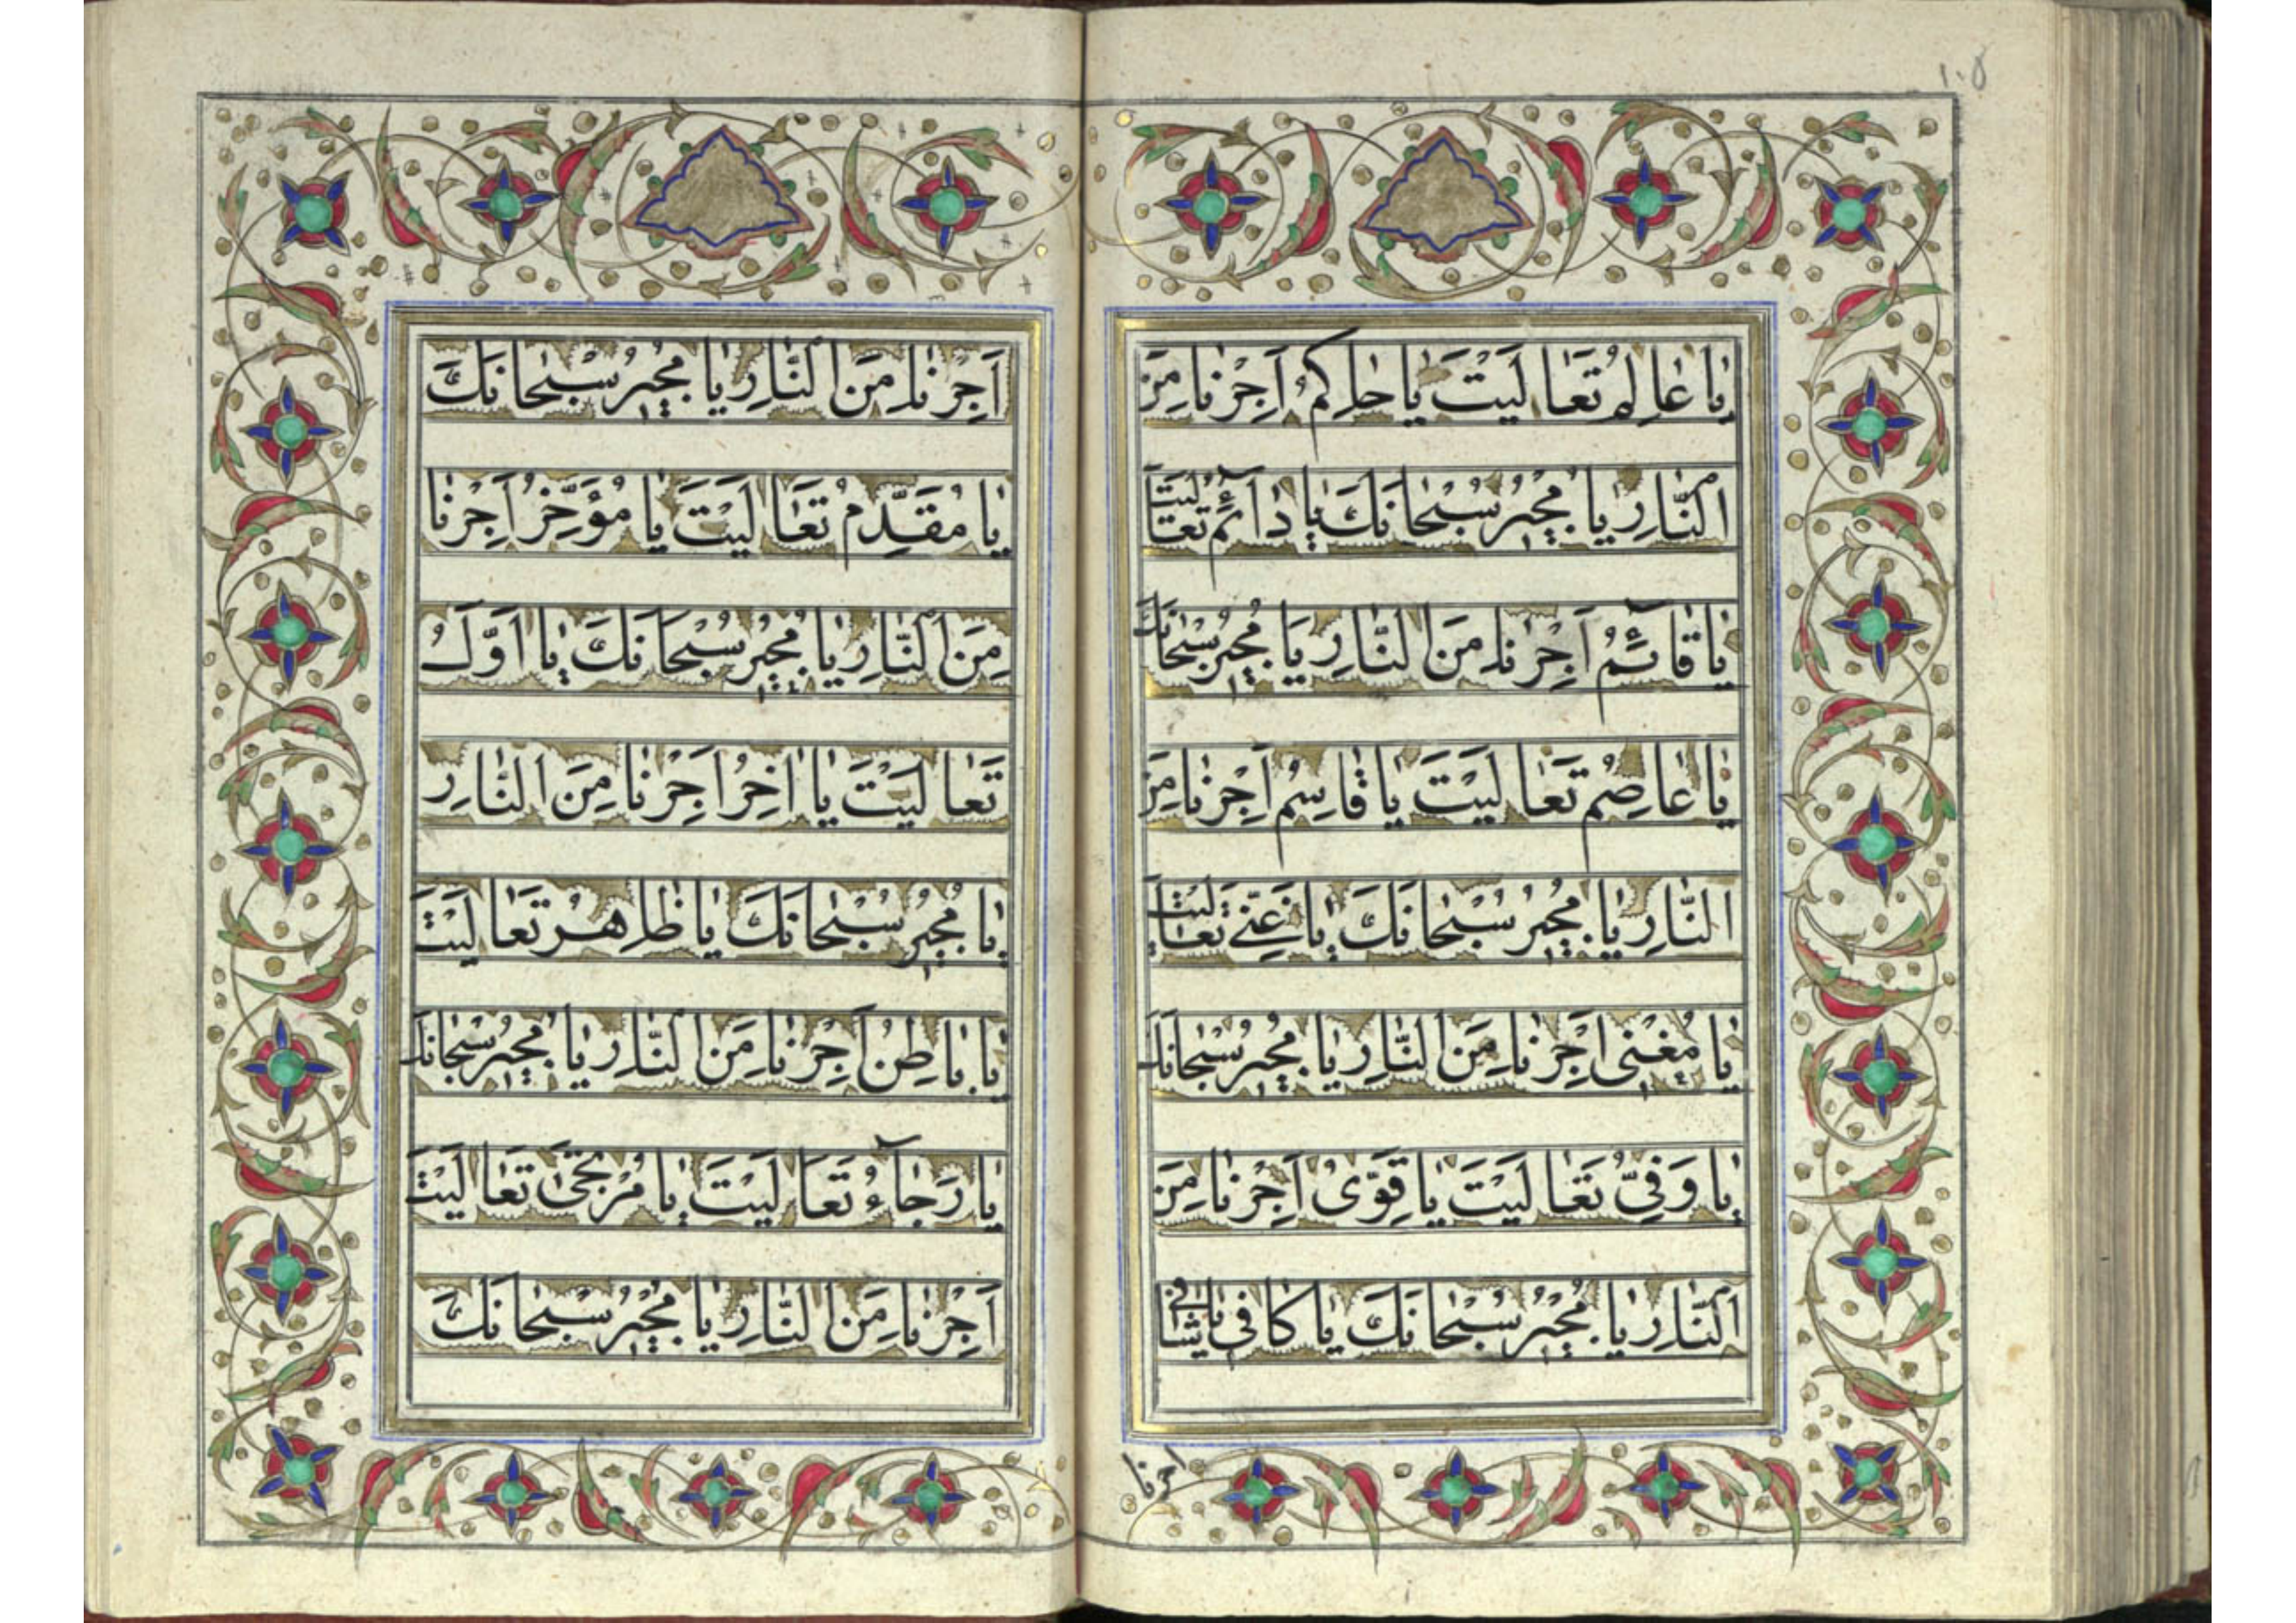 ١٠٥
يَا عَالِمُ تَعَالَيْتَ يَا حَاكِمُ أَجِرْنَا مِنَ
النَّارِ يَا مُجِيرُ سُبْحَانَكَ يَا دَآئِمُ تَعَالَيْتَ
يَا قَآئِمُ أَجِرْنَا مِنَ النَّارِ يَا مُجِيرُ سُبْحَانَكَ
يَا عَاصِمُ تَعَالَيْتَ يَا قَاسِمُ أَجِرْنَا مِنَ
النَّارِ يَا مُجِيرُ سُبْحَانَكَ يَا غَنِيُّ تَعَالَيْتَ
يَا مُغْنِي أَجِرْنَا مِنَ النَّارِ يَا مُجِيرُ سُبْحَانَكَ
يَا وَفِيُّ تَعَالَيْتَ يَا قَوِيُّ أَجِرْنَا مِنَ
النَّارِ يَا مُجِيرُ سُبْحَانَكَ يَا كَافِي يَا شَافِي
اجرنا
أَجِرْنَا مِنَ النَّارِ يَا مُجِيرُ سُبْحَانَكَ
يَا مُقَدِّمُ تَعَالَيْتَ يَا مُؤَخِّرُ أَجِرْنَا
مِنَ النَّارِ يَا مُجِيرُ سُبْحَانَكَ يَا أَوَّلُ
تَعَالَيْتَ يَا اٰخِرُ أَجِرْنَا مِنَ النَّارِ
يَا مُجِيرُ سُبْحَانَكَ يَا ظَاهِرُ تَعَالَيْتَ
يَا بَاطِنُ أَجِرْنَا مِنَ النَّارِ يَا مُجِيرُ سُبْحَانَكَ
يَا رَجَآءُ تَعَالَيْتَ يَا مُرْتَجَىٰ تَعَالَيْتَ
أَجِرْنَا مِنَ النَّارِ يَا مُجِيرُ سُبْحَانَكَ